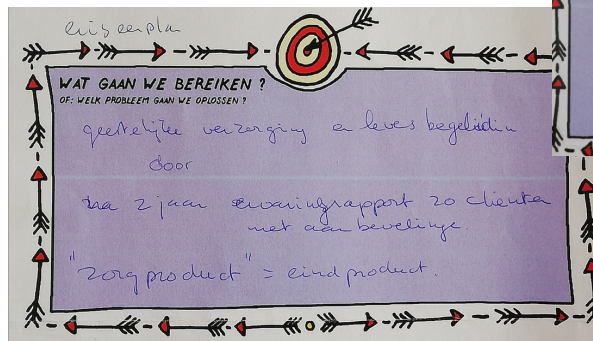 er is een plan
WAT GAAN WE BEREIKEN?
OF: WELK PROBLEEM GAAN WE OPLOSSEN?
geestelijke verzorging en levensbegeleiding
door
na 2 jaar ervaringsrapport 20 clienten
met aanbevelinge.
"zorgproduct" = eindproduct.